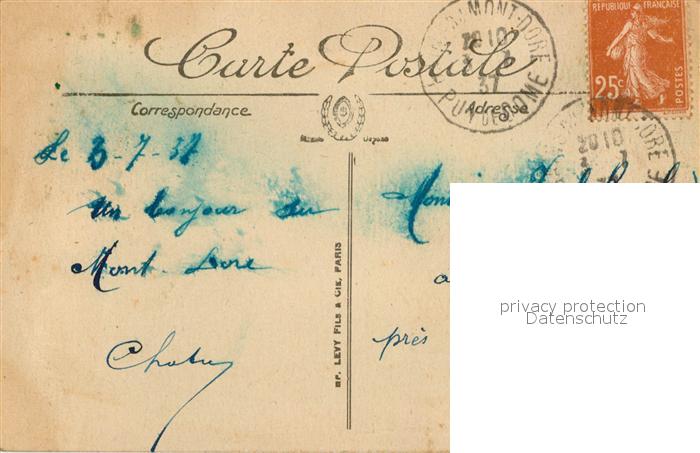 Carte Postale
Correspondance
Adresse
MONT-DORE
20 10
31
PUY DE DOME
REPUBLIQUE FRANÇAISE
25c
POSTES
20 10
Le 3-7-31
Un bonjour du
Mont-Dore
Monsieur
près
LEVY FILS & CIE, PARIS
privacy protection
Datenschutz